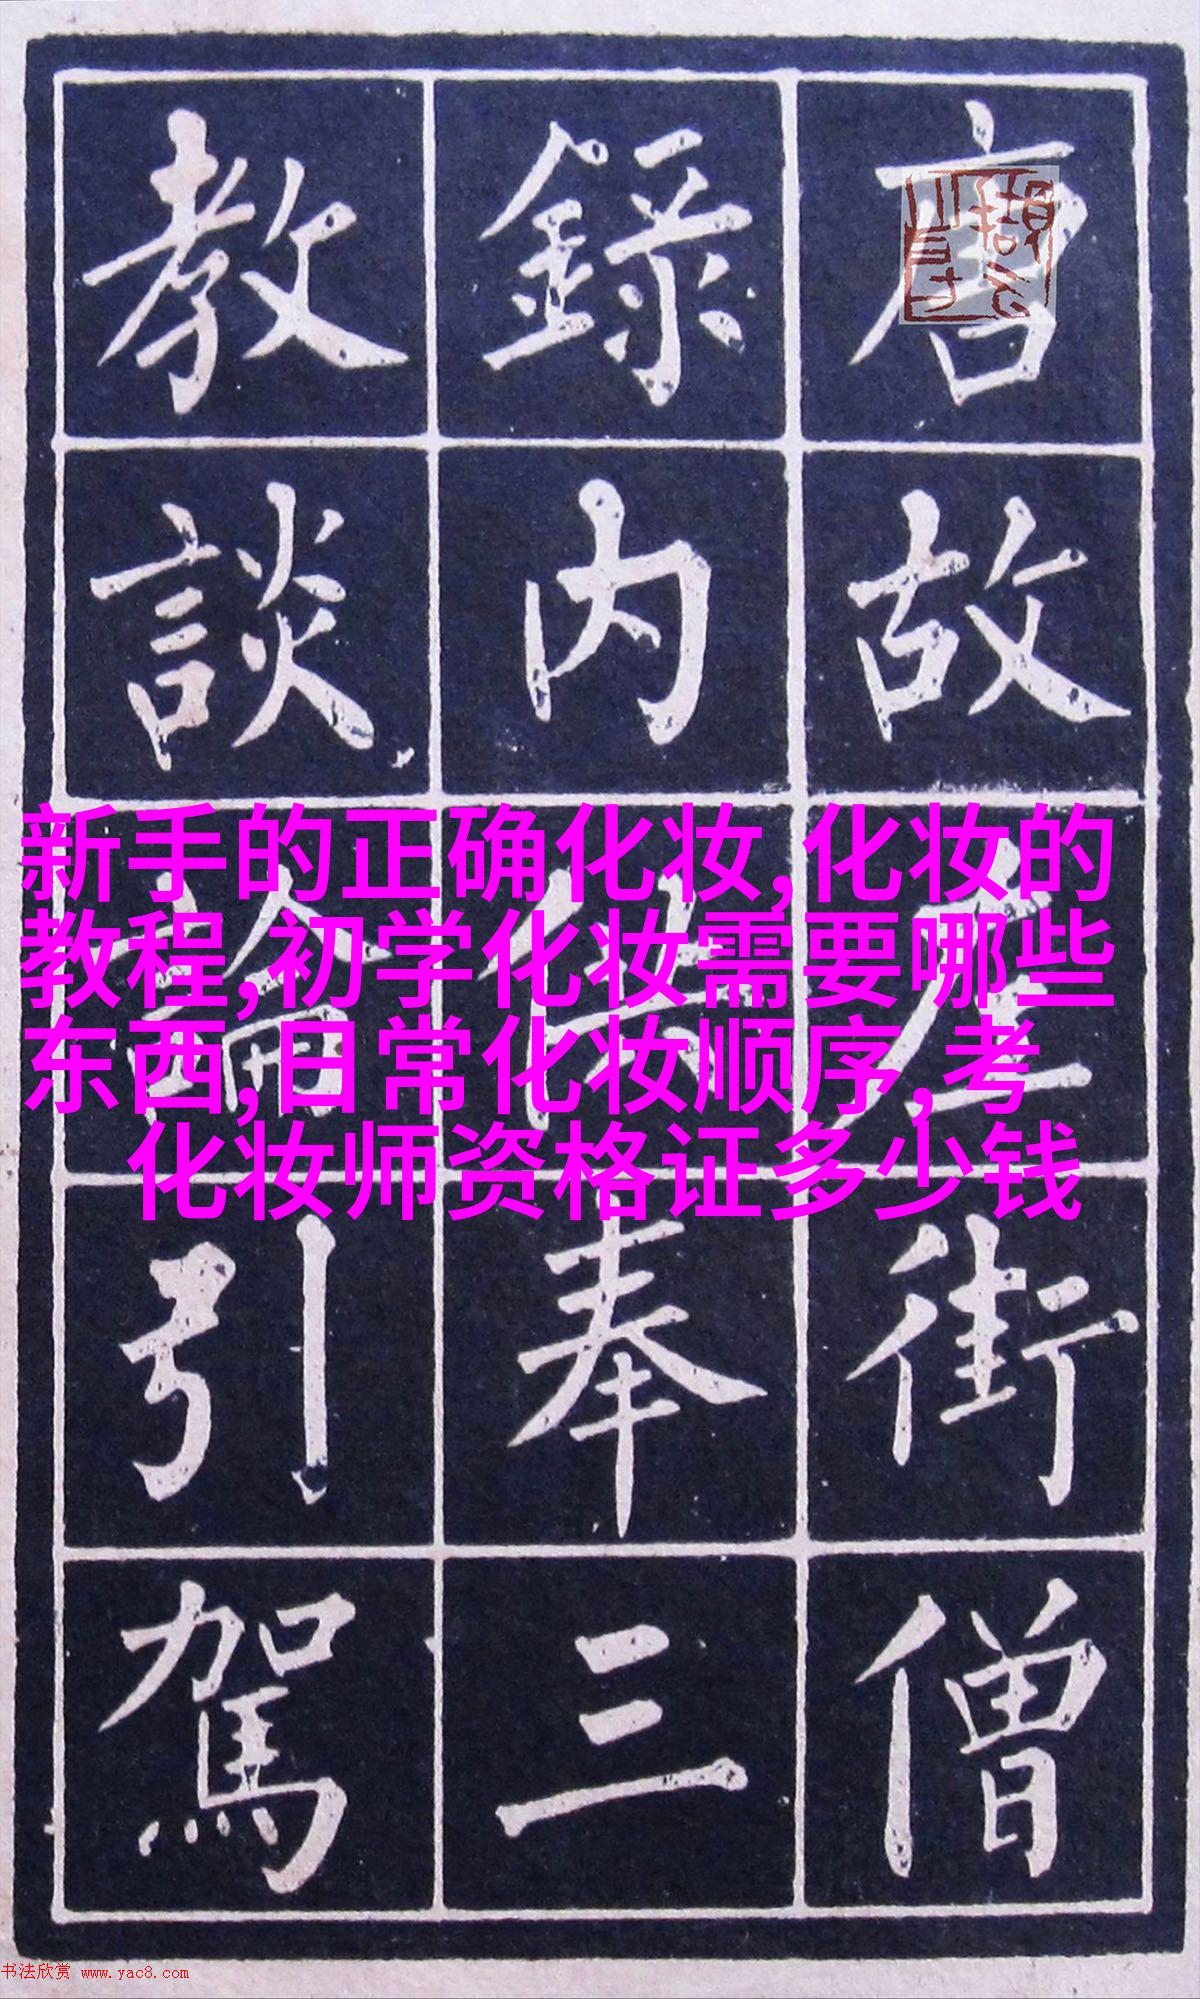 唐故左街僧
錄內供奉三
教談論引駕
新手的正确化妆,化妆的
教程,初学化妆需要哪些
东西,日常化妆顺序,考
化妆师资格证多少钱
书法欣赏 www.yac8.com